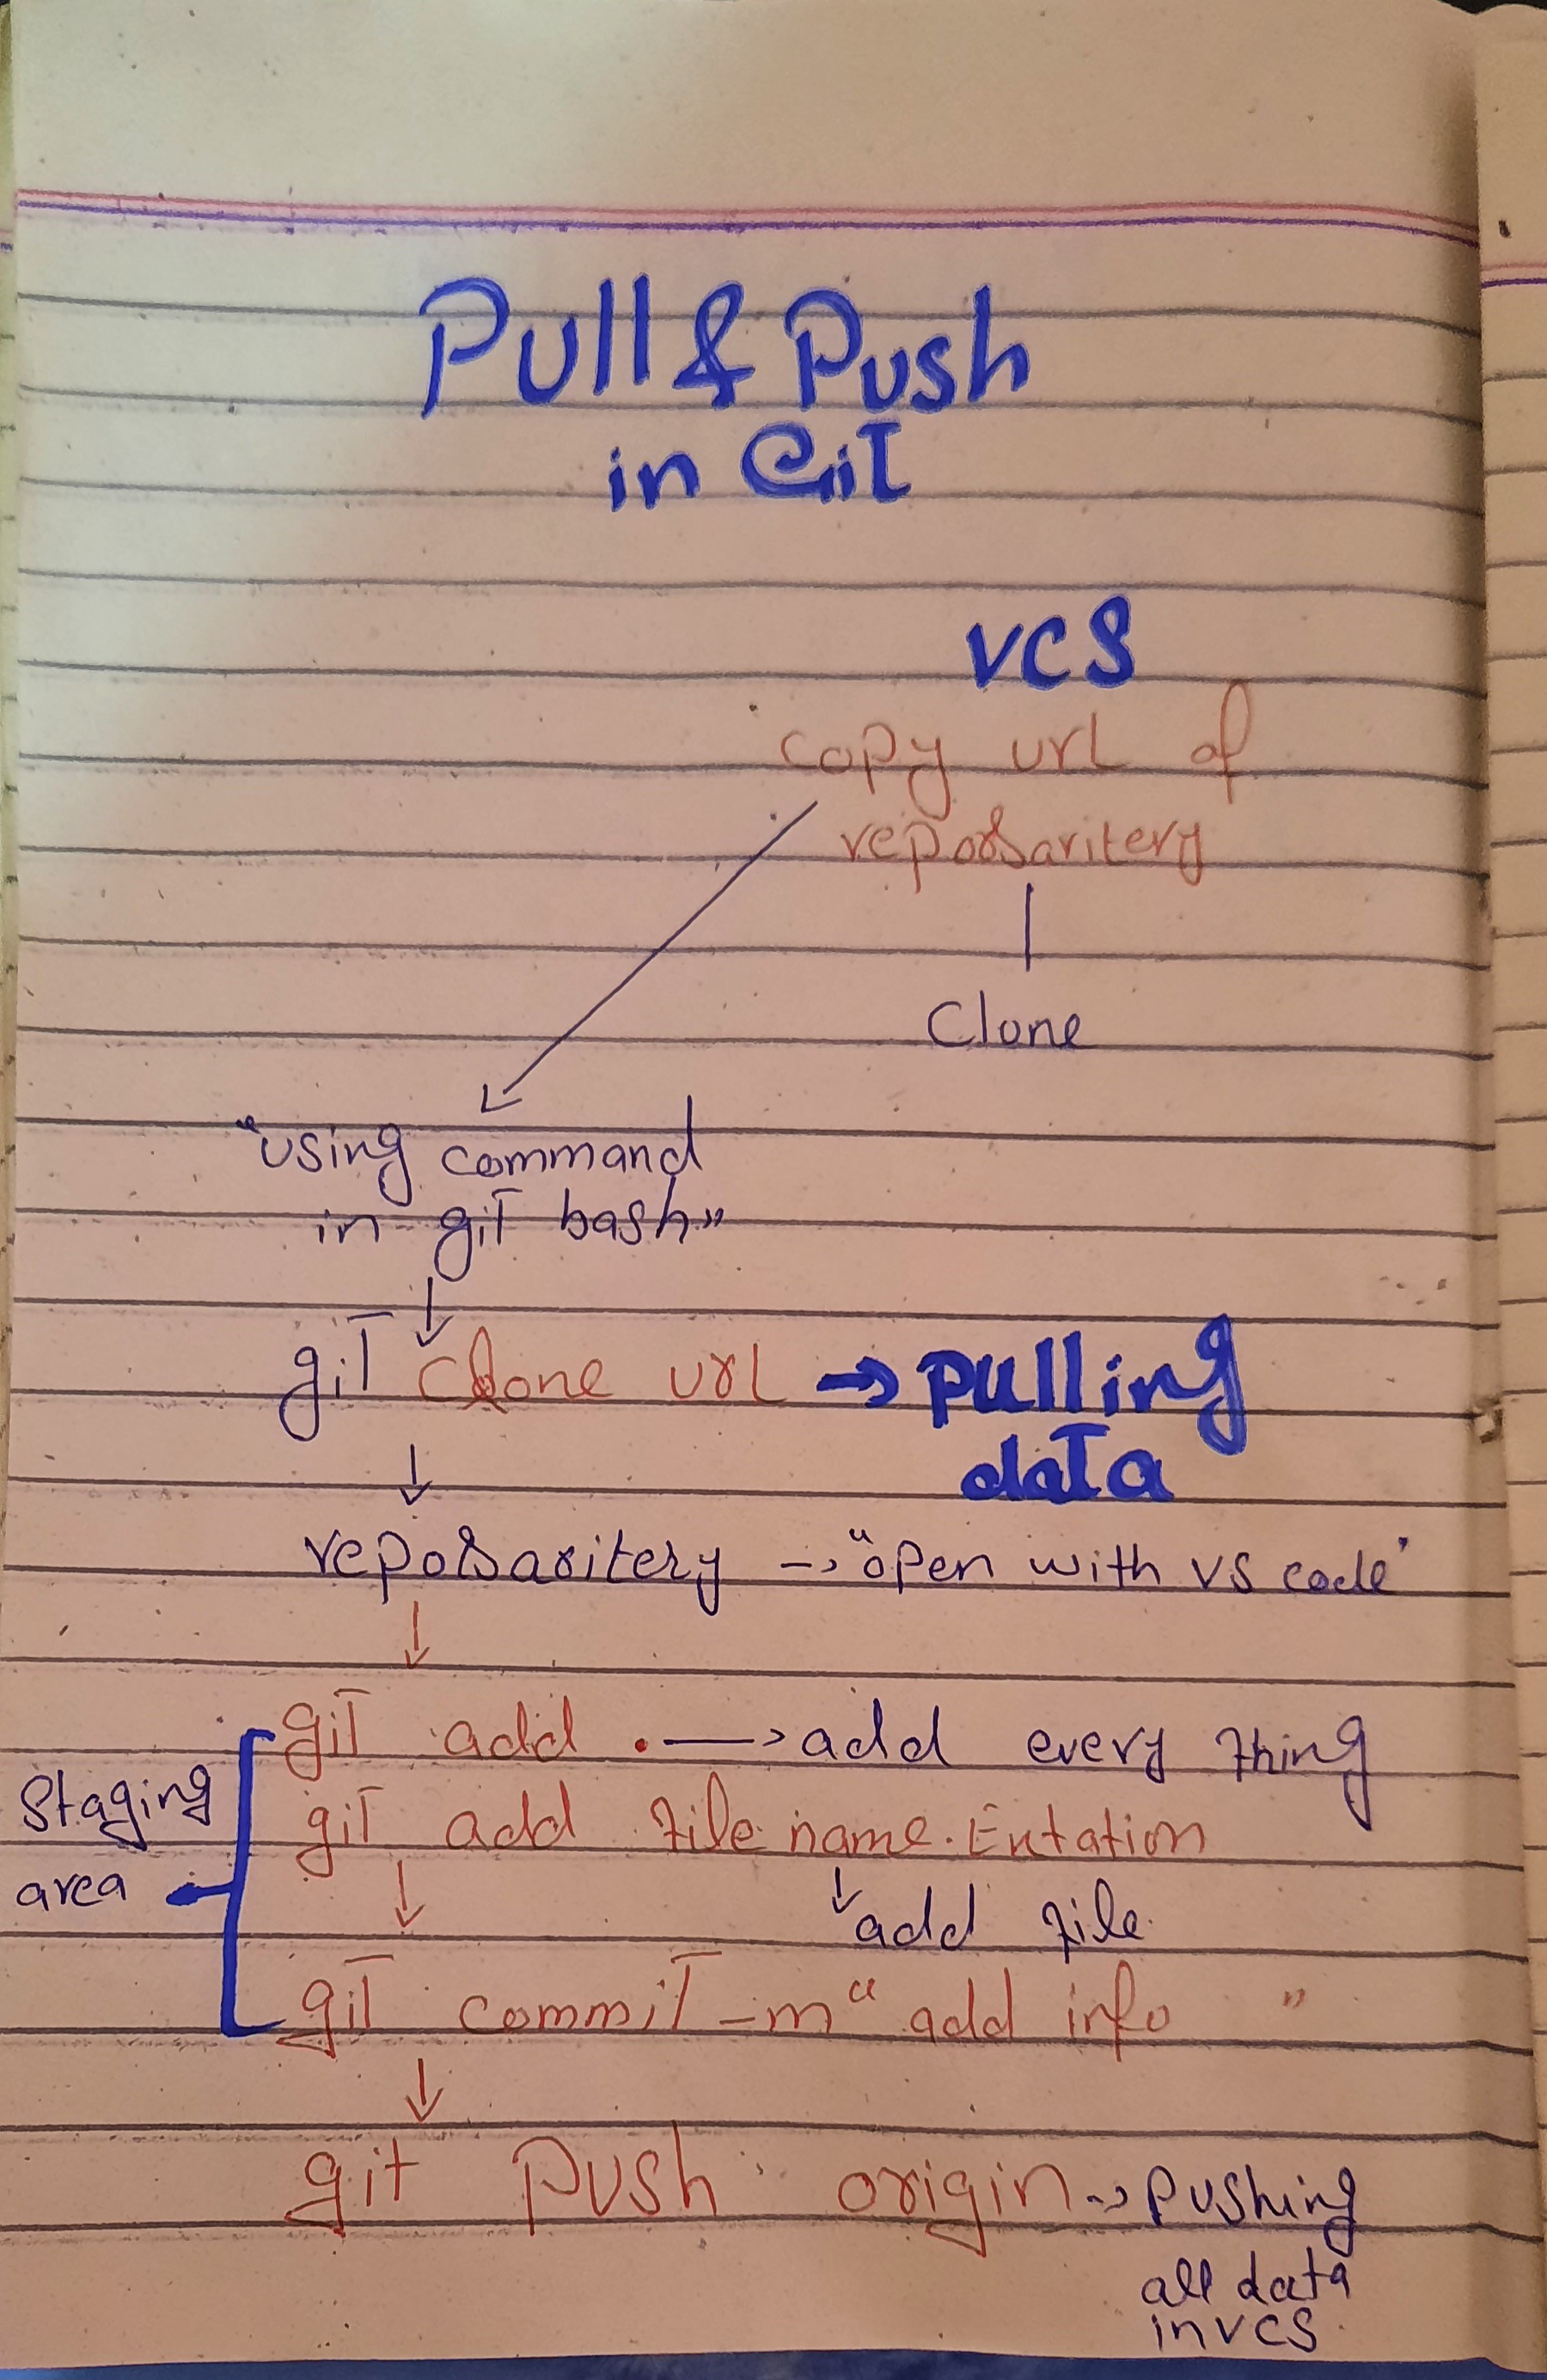 Pull & Push
in Git
VCS
copy url of
reposaritery
Clone
"using command
in git bash"
git clone url → pulling
data
reposaritery → "open with vs code"
git add . → add every thing
Staging
git add file name.Extation
area
add file
git commit -m "add info "
git push origin → pushing
all data
in VCS